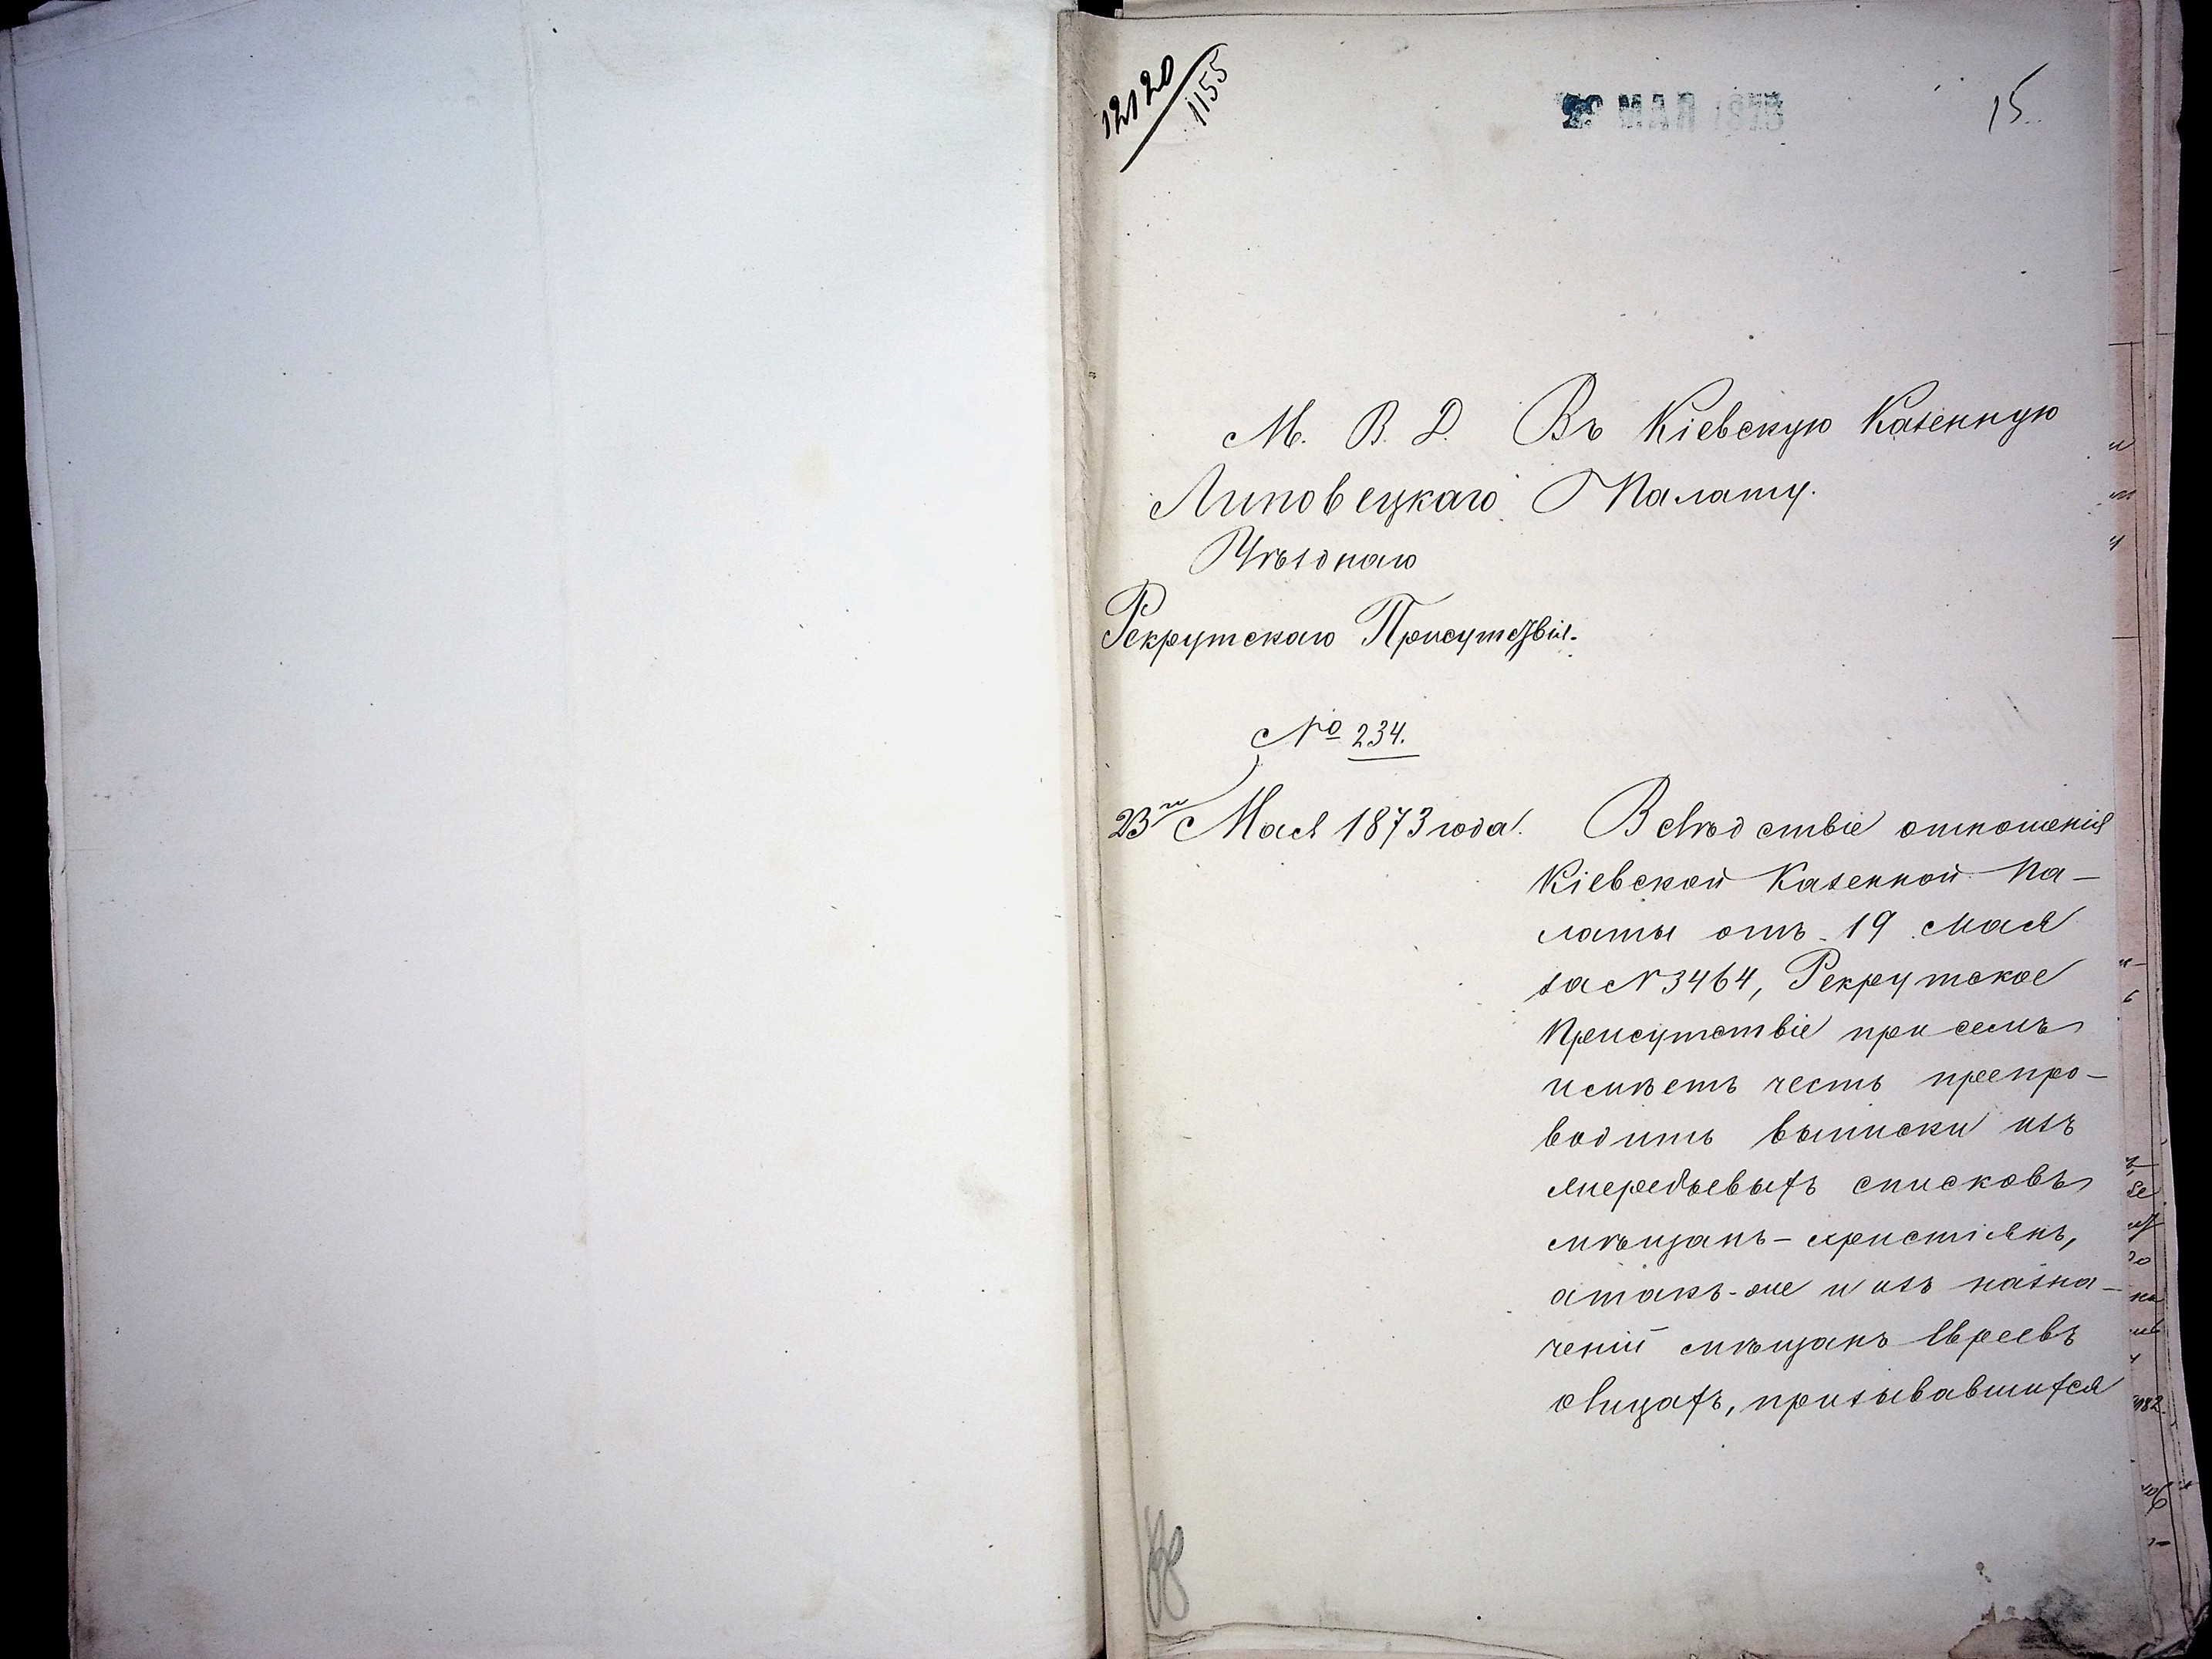 12120
1155
МАЯ 1873
15
М. В. Д.
Липовецкаго
Уѣзднаго
Рекрутскаго Присутствія.
№ 234.
23го Мая 1873 года.
Въ Кіевскую Казенную
Палату.
Вслѣдствіе отношенія
Кіевской Казенной Па-
латы отъ 19 Мая
за № 3464, Рекрутское
Присутствіе при семъ
имѣетъ честь препро-
водить выписки изъ
жеребьевыхъ списковъ
мѣщанъ-христіянъ,
а такъ-же и изъ назна-
ченій мѣщанъ Евреевъ
о лицахъ, призывавшихся